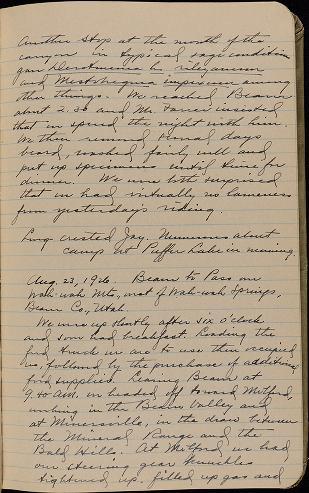 Another stop at the mouth of the
canyon in typical sage condition
gave Dermacentor
and impressus among
other things. We reached Beaver
about 2:30 and Mr. insisted
that we spend the night with him.
We then removed several days
beard, washed fairly well and
put up specimens until time for
dinner. We were both surprised
that we had virtually no lameness
from yesterday's riding.
Long-crested Jay. Numerous about
camp at Puffer Lake in morning.
Aug. 23, 1926. Beaver to Pass on
Wah-wah Mts., west of Wah-wah Springs,
Beaver Co., Utah.
We were up shortly after six o'clock
and soon had breakfast. Loading the
ford truck we are to use then occupied
us, followed by the purchase of additional
food supplies. Leaving Beaver at
9:40 A.M. we headed off toward Milford,
in the Beaver Valley and
at Minersville, in the draw between
the Mineral Range and the
Bald Hills. At Milford we had
our steering gear knuckles
tightened up, filled up gas and